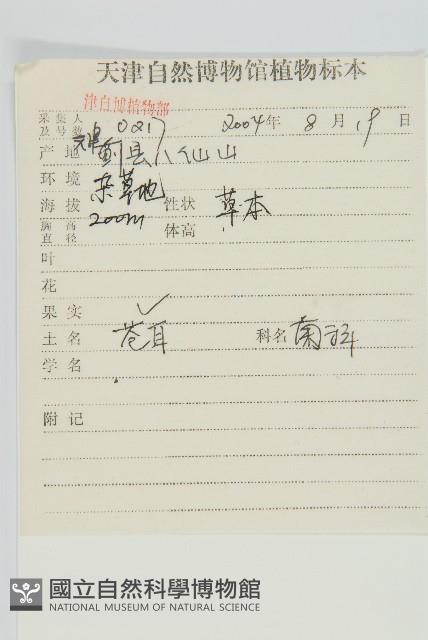 天津自然博物馆植物标本
津自博植物部
采集人
及号数 0217 2004年 8月19日
产地 天津蓟县八仙山
环境 杂草地
海拔 200m 性状 草本
胸高
直径 体高
叶
花
果实
土名 苍耳 科名 菊科
学名
附记
國立自然科學博物館
NATIONAL MUSEUM OF NATURAL SCIENCE